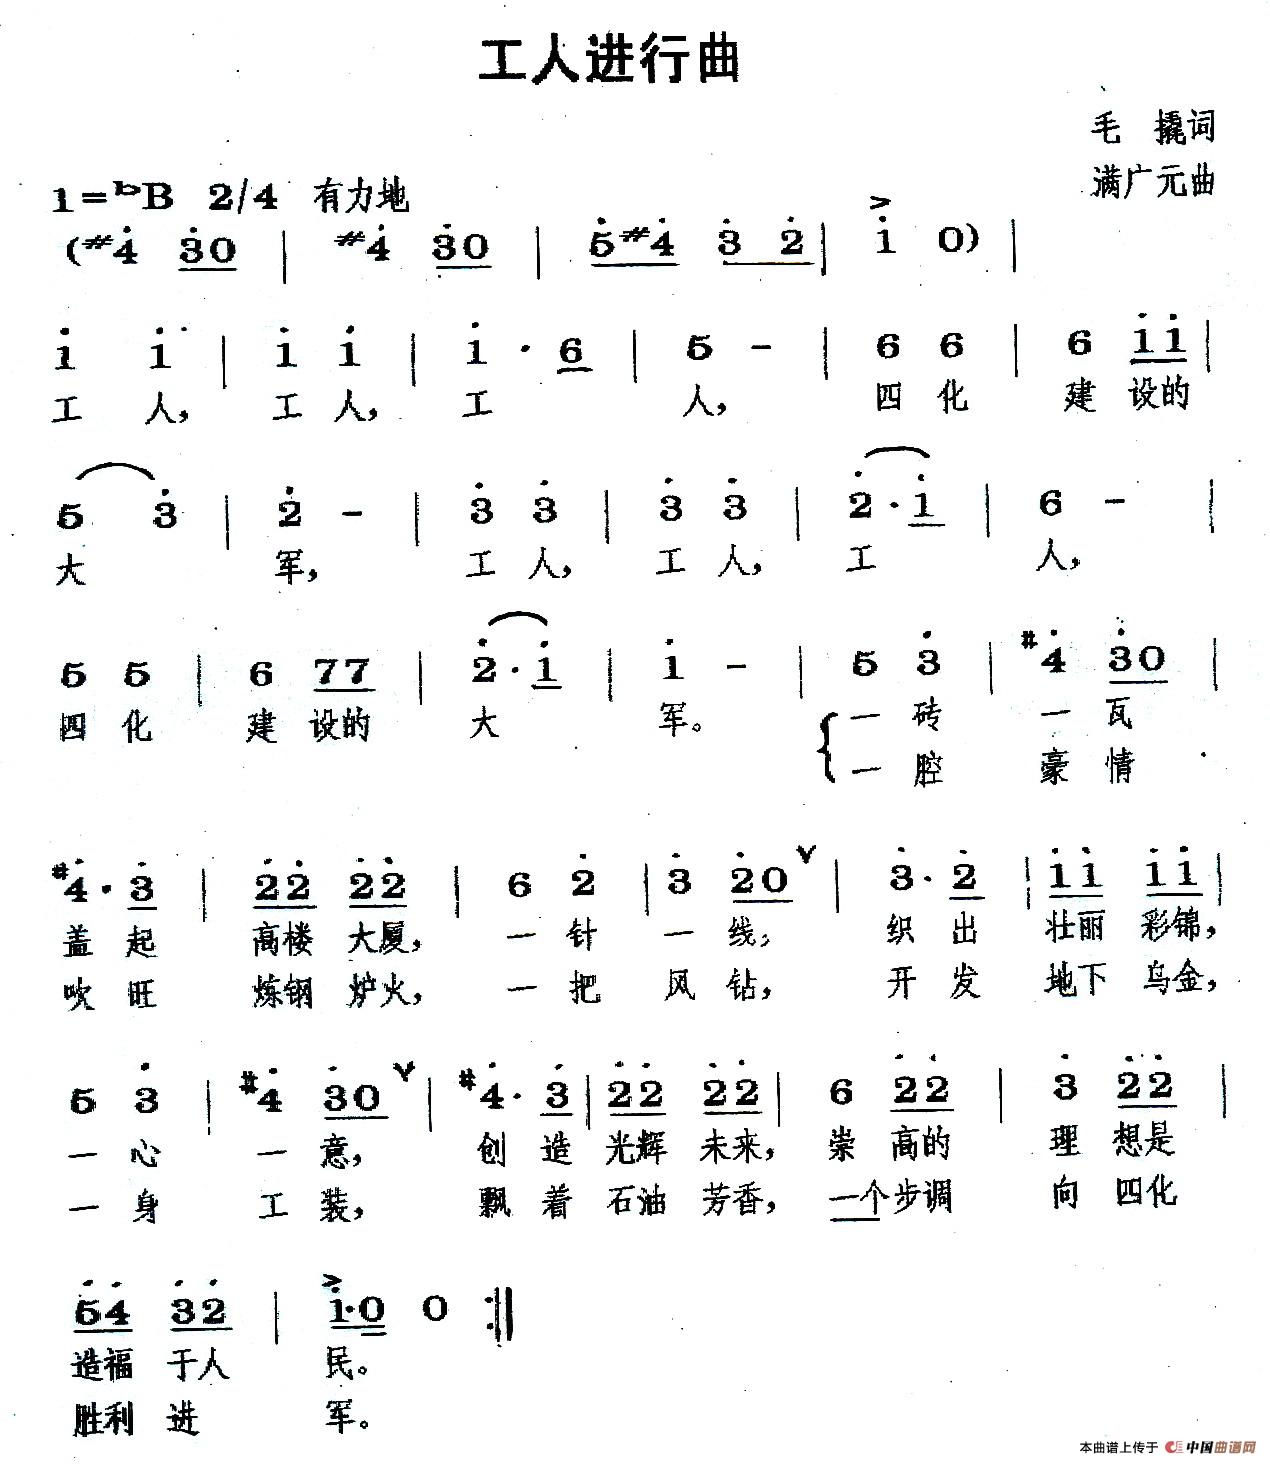 工人进行曲
毛 撬词
满广元曲
1=♭B 2/4 有力地
(#4̇ 3̇0 | #4̇ 3̇0 | 5̇#4̇ 3̇ 2̇ | 1̇ 0) |
1̇ 1̇ | 1̇ 1̇ | 1̇ · 6 | 5 - | 6 6 | 6 1̇1̇ |
工 人, 工 人, 工 人, 四 化 建 设的
5 3̇ | 2̇ - | 3̇ 3̇ | 3̇ 3̇ | 2̇ · 1̇ | 6 - |
大 军, 工 人, 工 人, 工 人,
5 5 | 6 77 | 2̇ · 1̇ | 1̇ - | 5 3̇ | #4̇ 3̇0 |
四 化 建 设的 大 军。 一 砖 一 瓦
一 腔 豪 情
#4̇ · 3̇ | 2̇2̇ 2̇2̇ | 6 2̇ | 3̇ 2̇0 ∨ | 3̇ · 2̇ | 1̇1̇ 1̇1̇ |
盖 起 高楼 大厦, 一 针 一 线, 织 出 壮丽 彩锦,
吹 旺 炼钢 炉火, 一 把 风 钻, 开 发 地下 乌金,
5 3̇ | #4̇ 3̇0 ∨ | #4̇ · 3̇ | 2̇2̇ 2̇2̇ | 6 2̇2̇ | 3̇ 2̇2̇ |
一 心 一 意, 创 造 光辉 未来, 崇 高的 理 想是
一 身 工 装, 飘 着 石油 芳香, 一个 步调 向 四化
5̇4̇ 3̇2̇ | 1̇·0 0 :‖
造福 于人 民。
胜利 进 军。
本曲谱上传于 中国曲谱网